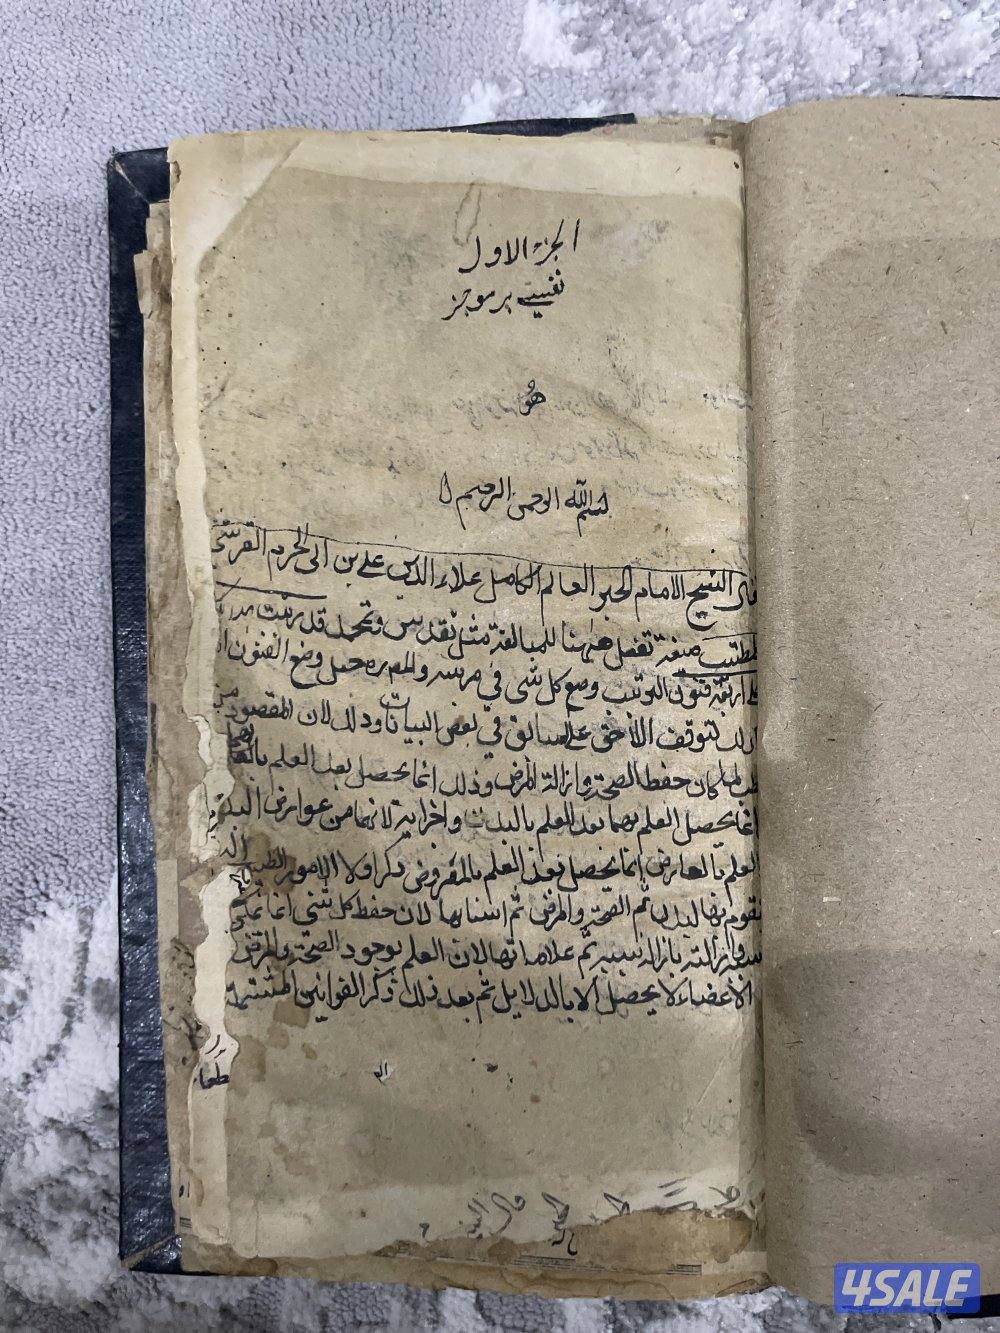 الجزء الاول
نفيسے بر موجز
هُو
بسم الله الرحمن الرحيم
قال الشيخ الامام الحبر العالم الكامل علاء الدين علي بن ابى الحزم القرشى
المتطبب صيغة تفعل ههنا للمبالغة مثل تقدس وتحمد قد رتبت
على اربعة فنون الترتيب وضع كل شئ في مرتبته والمصره حمل وضع الفنون
لتوقف اللاحق على السابق في بعض البيانات وذلك لان المقصود من
الطب لما كان حفظ الصحة وازالة المرض وذلك انما يحصل بعد العلم بالصحة
انما يحصل العلم بهما بعد العلم بالبدن واجزائه لانهما من عوارض البدن
العلم بالعارض انما يحصل بعد العلم بالمعروض ذكر اولا الامور الطبيعية
تقوم بها البدن ثم الصحة والمرض ثم اسبابها لان حفظ كل شئ انما يمكن
وازالته بازالة سببه ثم علاماتها لان العلم بوجود الصحة والمرض
الاعضاء لا يحصل الا بالدلايل ثم بعد ذلك ذكر القوانين المشتملة
4SALE